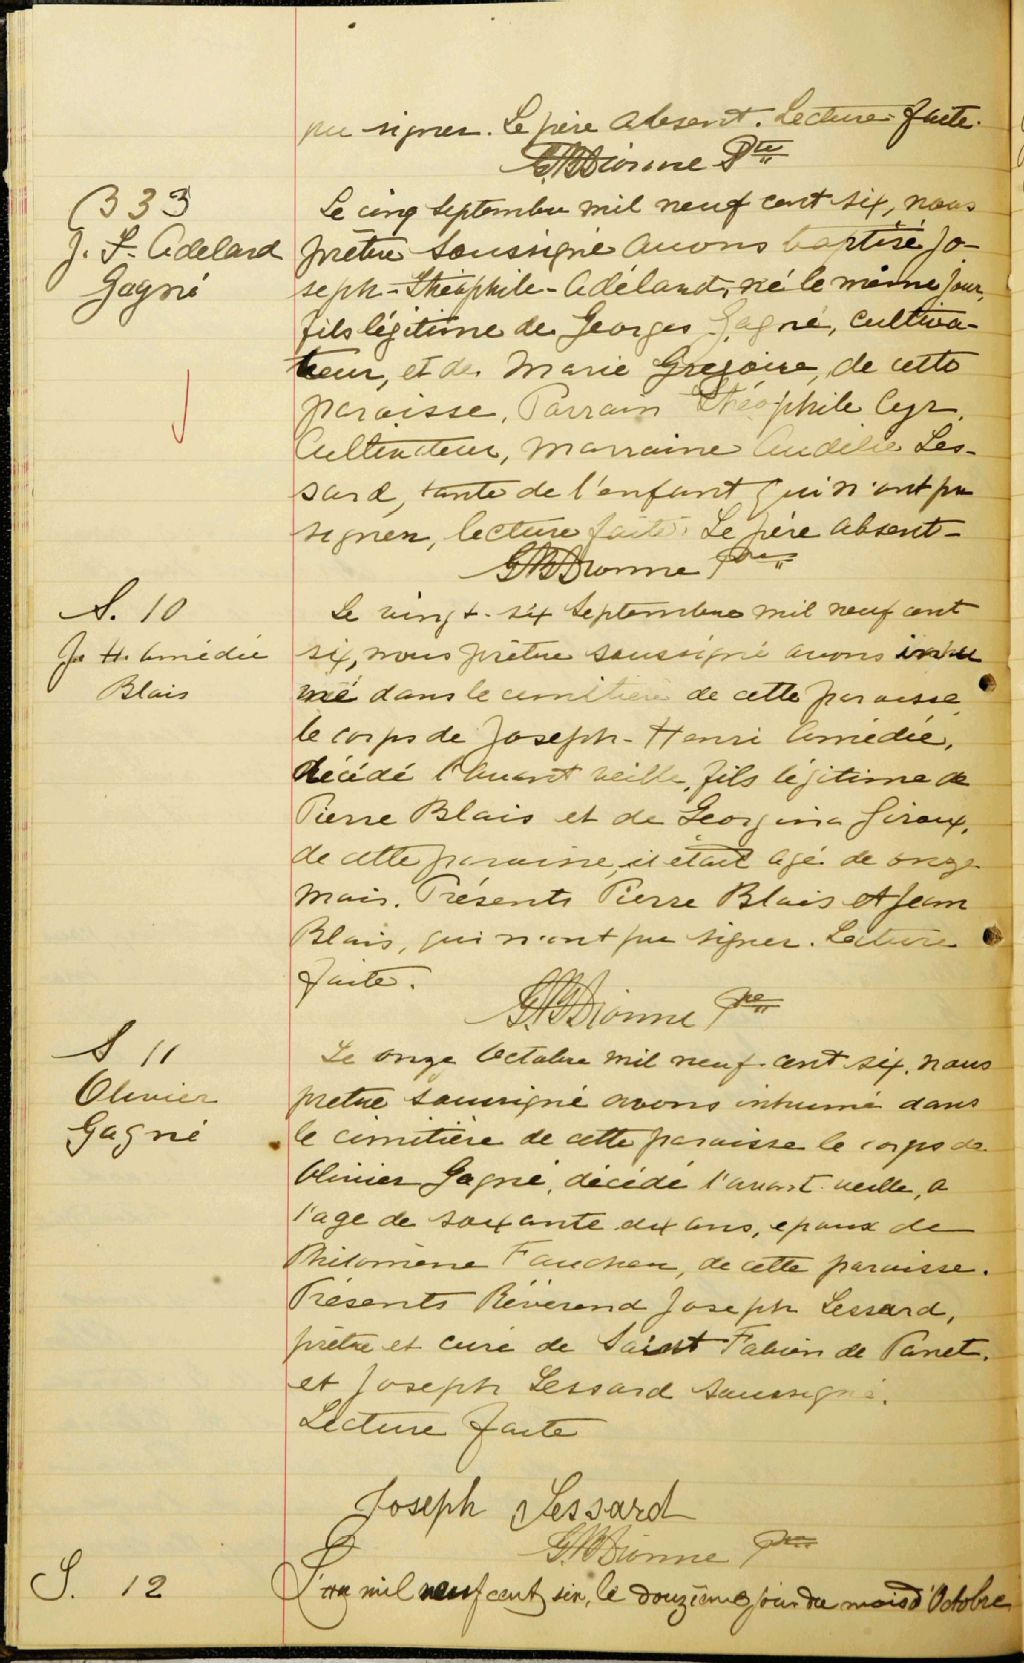 pu signer. Le père absent. Lecture faite.
G.B. Dionne Ptre
B 33
J. T. Adelard
Gagné
Le cinq Septembre mil neuf cent six, nous
prêtre soussigné avons baptisé Jo-
seph-Théophile-Adélard, né le même jour,
fils légitime de Georges Gagné, cultiva-
teur, et de Marie Gregoire, de cette
paroisse, Parrain Théophile Cyr,
Cultivateur, Marraine Audélie Les-
sard, tante de l'enfant qui n'ont pu
signer, lecture faite. Le père absent-
G.B. Dionne Ptre
S. 10
Js H. Amédée
Blais
Le vingt-six Septembre mil neuf cent
six, nous prêtre soussigné avons inhu
mé dans le cimitière de cette paroisse,
le corps de Joseph-Henri Amédée,
décédé l'avant veille, fils légitime de
Pierre Blais et de Georgina Giroux,
de cette paroisse, il était agé de onze
mois. Présents Pierre Blais et Jean
Blais, qui n'ont pu signer. Lecture
faite.
G.B. Dionne Ptre
S 11
Olivier
Gagné
Le onze Octobre mil neuf cent six, nous
pretre soussigné avons inhumé dans
le cimitière de cette paroisse le corps de
Olivier Gagné, décédé l'avant veille, a
l'age de soixante dix ans, epoux de
Philomène Faucher, de cette paroisse.
Présents Révérend Joseph Lessard,
prêtre et curé de Saint Fabien de Panet,
et Joseph Lessard soussigné.
Lecture faite
Joseph Lessard
G.B. Dionne Ptre
S. 12
L'an mil neuf cent six, le douzième jour du mois d'Octobre